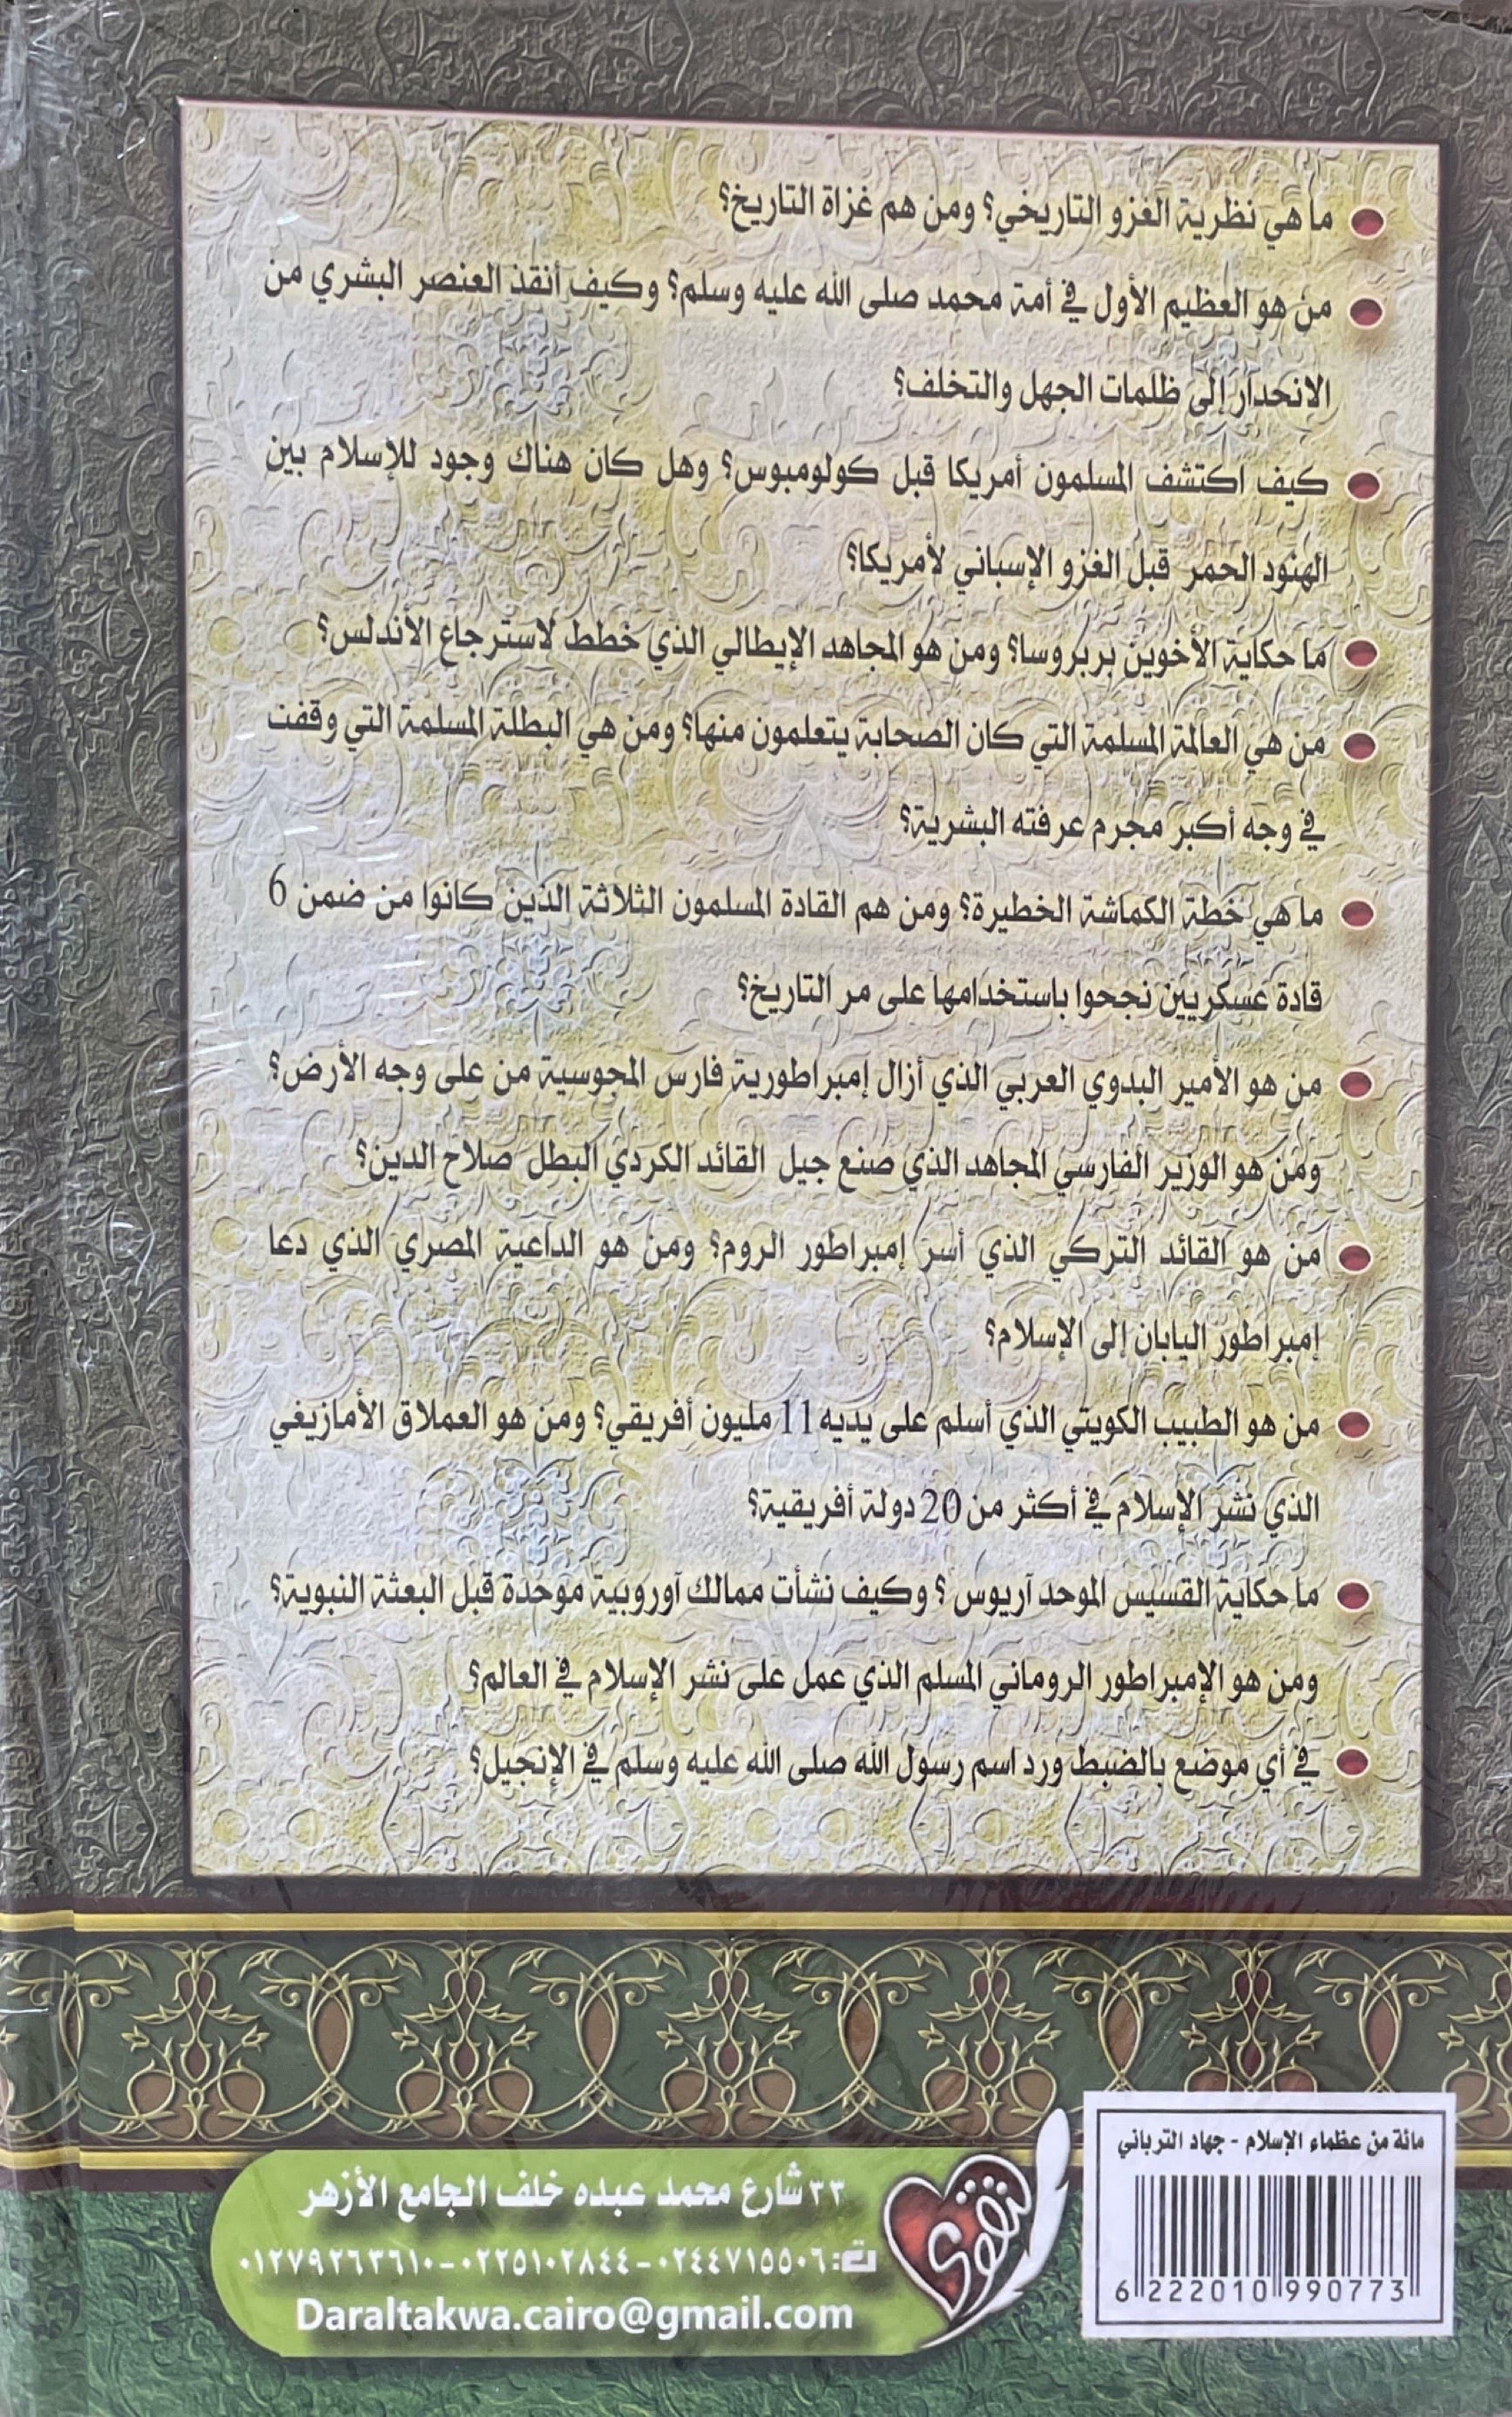 ما هي نظرية الغزو التاريخي؟ ومن هم غزاة التاريخ؟
من هو العظيم الأول في أمة محمد صلى الله عليه وسلم؟ وكيف أنقذ العنصر البشري من
الانحدار إلى ظلمات الجهل والتخلف؟
كيف اكتشف المسلمون أمريكا قبل كولومبوس؟ وهل كان هناك وجود للإسلام بين
الهنود الحمر قبل الغزو الإسباني لأمريكا؟
ما حكاية الأخوين بربروسا؟ ومن هو المجاهد الإيطالي الذي خطط لاسترجاع الأندلس؟
من هي العالمة المسلمة التي كان الصحابة يتعلمون منها؟ ومن هي البطلة المسلمة التي وقفت
في وجه أكبر مجرم عرفته البشرية؟
ما هي خطة الكماشة الخطيرة؟ ومن هم القادة المسلمون الثلاثة الذين كانوا من ضمن 6
قادة عسكريين نجحوا باستخدامها على مر التاريخ؟
من هو الأمير البدوي العربي الذي أزال إمبراطورية فارس المجوسية من على وجه الأرض؟
ومن هو الوزير الفارسي المجاهد الذي صنع جيل القائد الكردي البطل صلاح الدين؟
من هو القائد التركي الذي أسر إمبراطور الروم؟ ومن هو الداعية المصري الذي دعا
إمبراطور اليابان إلى الإسلام؟
من هو الطبيب الكويتي الذي أسلم على يديه 11 مليون أفريقي؟ ومن هو العملاق الأمازيغي
الذي نشر الإسلام في أكثر من 20 دولة أفريقية؟
ما حكاية القسيس الموحد آريوس ؟ وكيف نشأت ممالك آوروبية موحدة قبل البعثة النبوية؟
ومن هو الإمبراطور الروماني المسلم الذي عمل على نشر الإسلام في العالم؟
في أي موضع بالضبط ورد اسم رسول الله صلى الله عليه وسلم في الإنجيل؟
مائة من عظماء الإسلام - جهاد الترباني
6 222010 990773
تقوى
٣٣ شارع محمد عبده خلف الجامع الأزهر
ت: ٠٢٤٤٧١٥٥٠٦ - ٠٢٢٥١٠٢٨٤٤ - ٠١٢٧٩٢٦٣٦١٠
Daraltakwa.cairo@gmail.com